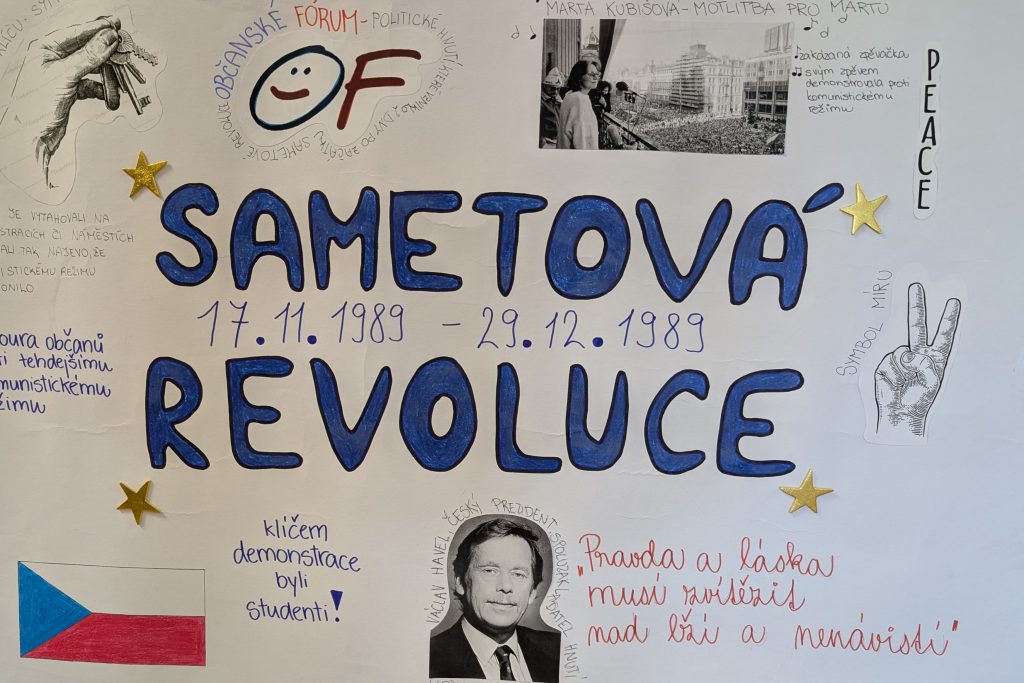 OBČANSKÉ FÓRUM - POLITICKÉ HNUTÍ, KTERÉ VZNIKLO 2 DNY PO ZAČÁTKU SAMETOVÉ REVOLUCE
OF
MARTA KUBIŠOVÁ - MOTLITBA PRO MARTU
zakázaná zpěvačka
svým zpěvem
demonstrovala proti
komunistickému
režimu
PEACE
SAMETOVÁ
17.11.1989 - 29.12.1989
REVOLUCE
JE VYTAHOVALI NA
STRACÍCH ČI NÁMĚSTÍCH
ALI TAK NAJEVO, ŽE
ISTICKÉMU REŽIMU
ONILO
oura občanů
ti tehdejšímu
munistickému
žimu
SYMBOL MÍRU
klíčem
demonstrace
byli
studenti!
VÁCLAV HAVEL, ČESKÝ PREZIDENT, SPOLUZAKLADATEL HNUTÍ
„Pravda a láska
musí zvítězit
nad lží a nenávistí"